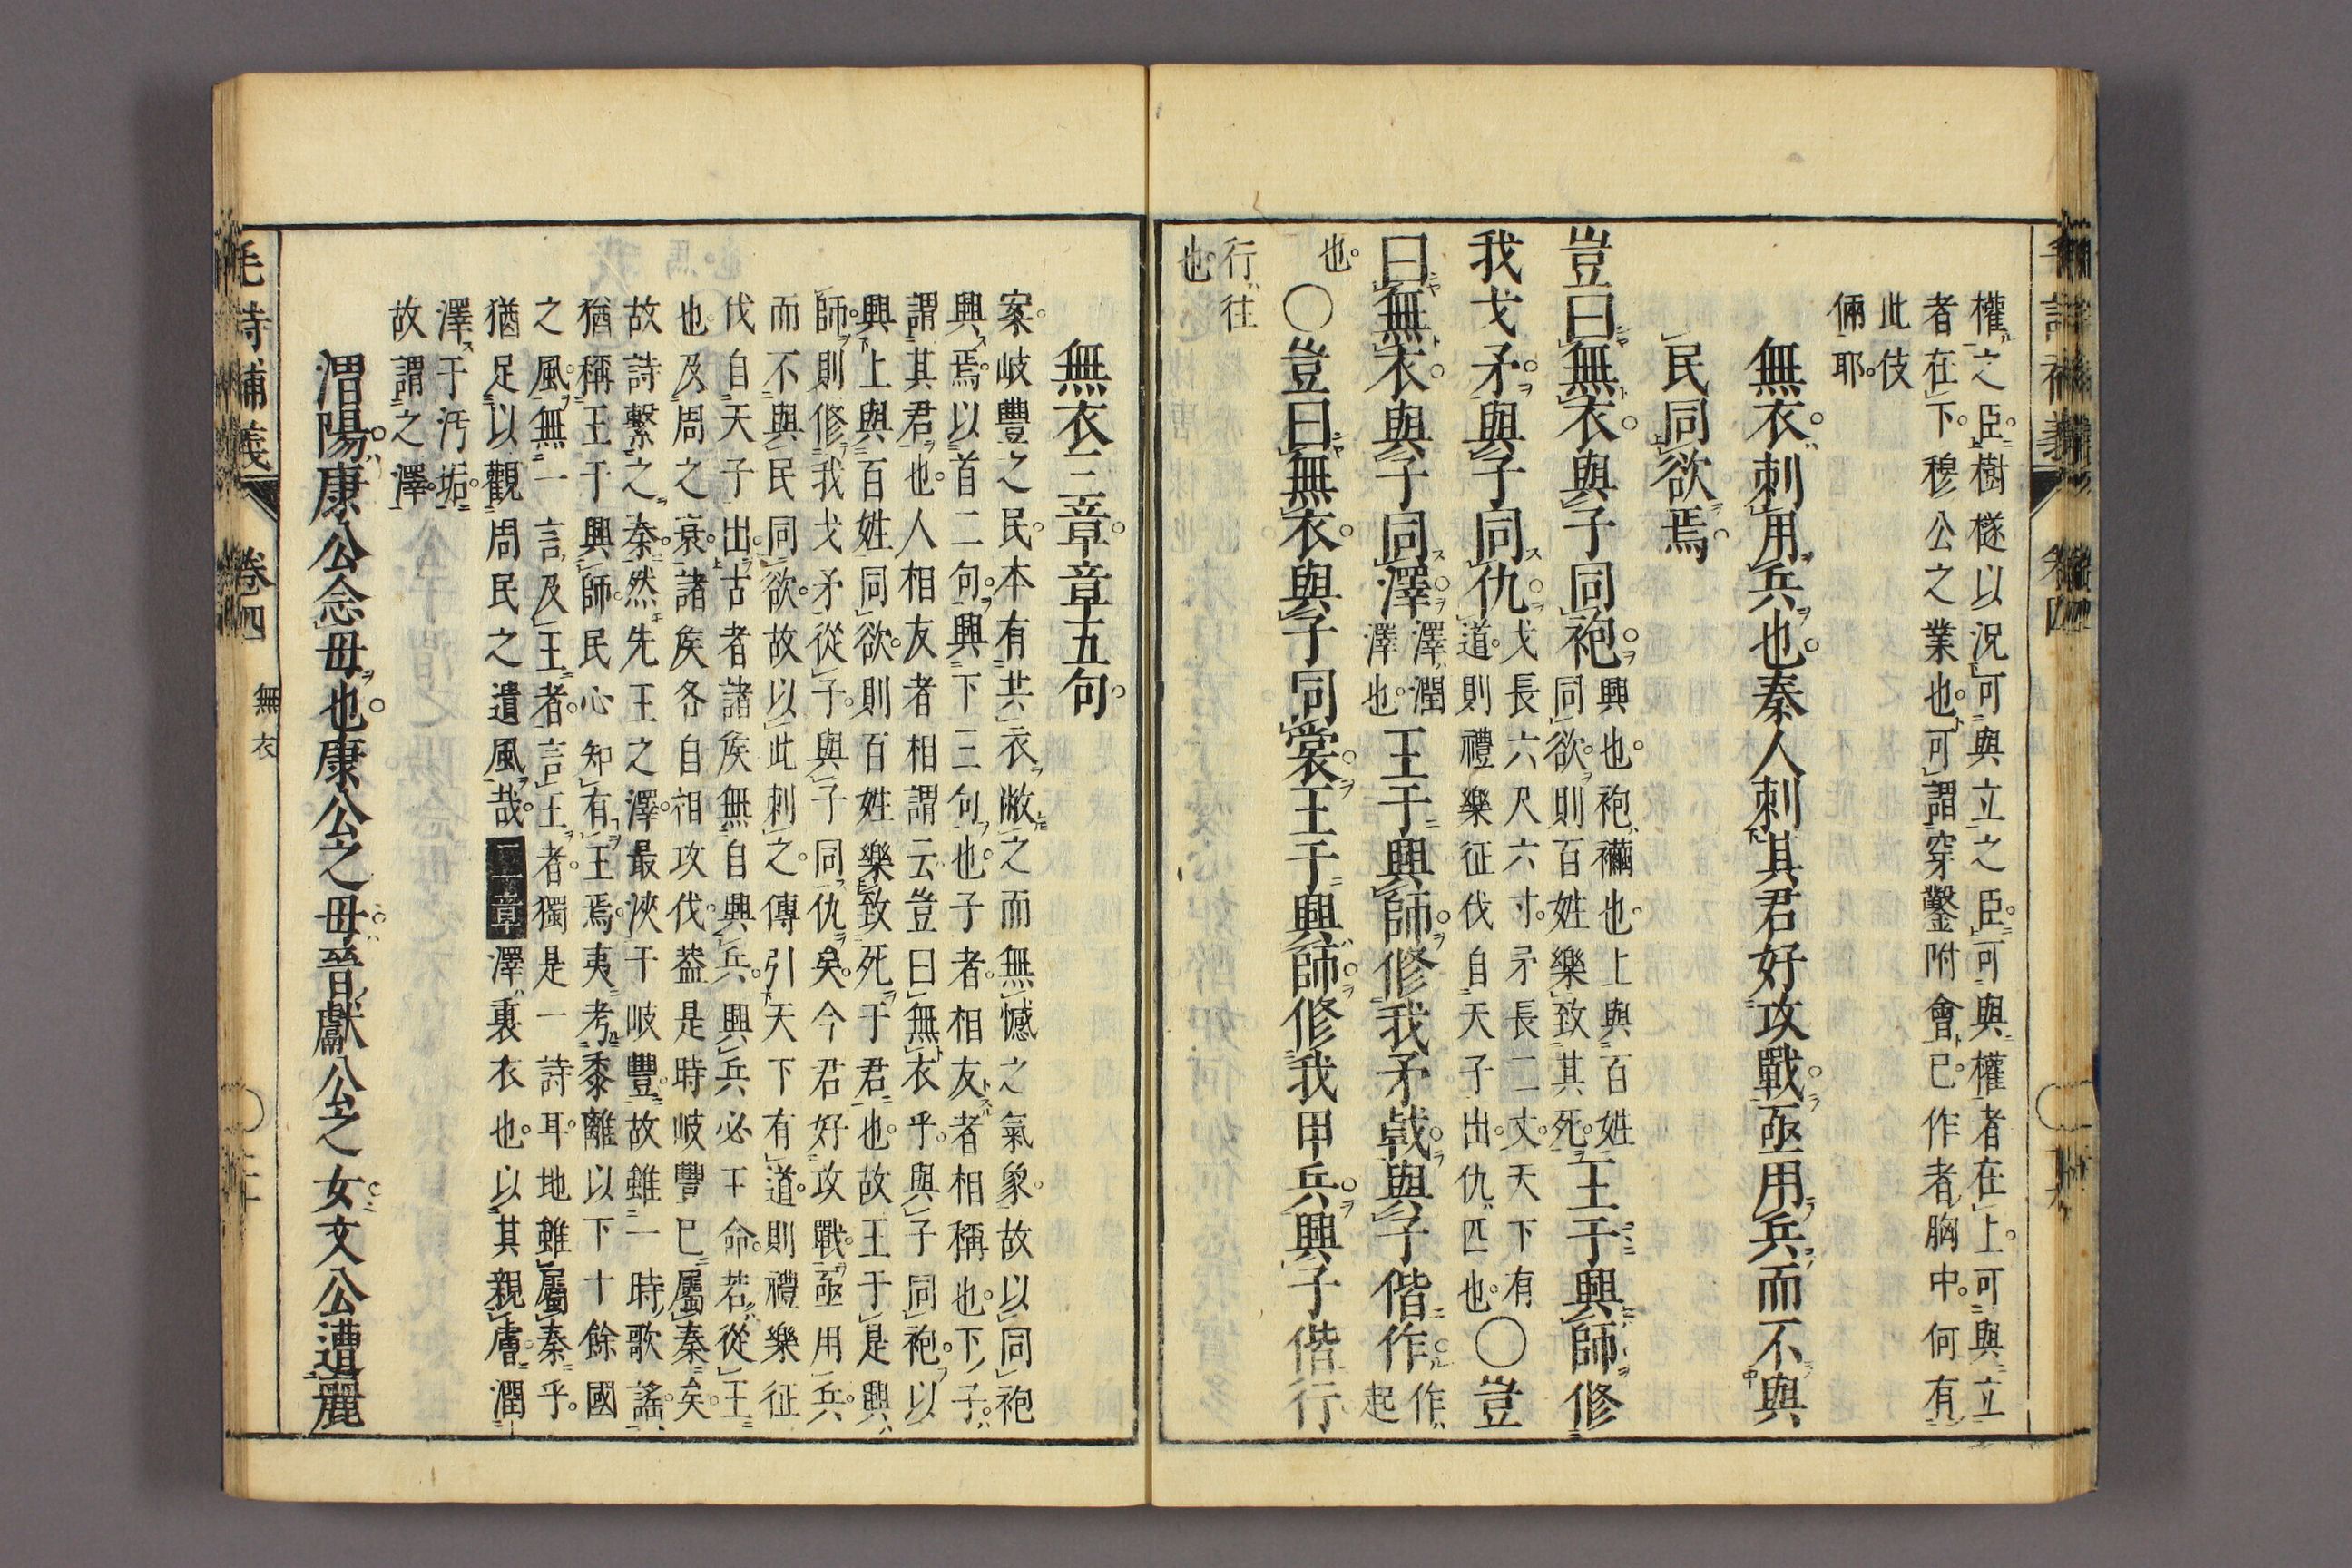 權之臣樹檖以況可與立之臣可與權者在上可與立
者在下穆公之業也可謂穿鑿附會已作者胸中何有
此伎
倆耶
無衣刺用兵也秦人刺其君好攻戰亟用兵而不與
民同欲焉
豈曰無衣與子同袍興也袍襺也上與百姓同欲則百姓樂致其死王于興師修
我戈矛與子同仇戈長六尺六寸矛長二丈天下有道則禮樂征伐自天子出仇匹也○豈
曰無衣與子同澤澤潤澤也王于興師修我矛戟與子偕作作起
也○豈曰無衣與子同裳王于興師修我甲兵與子偕行
行往
也
無衣三章章五句
案岐豐之民本有共衣敝之而無憾之氣象故以同袍
興焉以首二句興下三句也子者相友者相稱也下子
謂其君也人相友者相謂云豈曰無衣乎與子同袍以
興上與百姓同欲則百姓樂致死于君也故王于是興
師則修我戈矛從子與子同仇矣今君好攻戰亟用兵
而不與民同欲故以此刺之傳引天下有道則禮樂征
伐自天子出古者諸矦無自興兵興兵必王命若從王
也及周之衰諸矦各自相攻伐葢是時岐豐已屬秦矣
故詩繫之秦然先王之澤最浹于岐豐故雖一時歌謠
猶稱王于興師民心知有王焉夷考黍離以下十餘國
之風無一言及王者言王者獨是一詩耳地雖屬秦乎
猶足以觀周民之遺風哉二章澤裏衣也以其親膚潤
澤于汚垢
故謂之澤
渭陽康公念母也康公之母晉獻公之女文公遭麗
毛詩補義
卷四
無衣